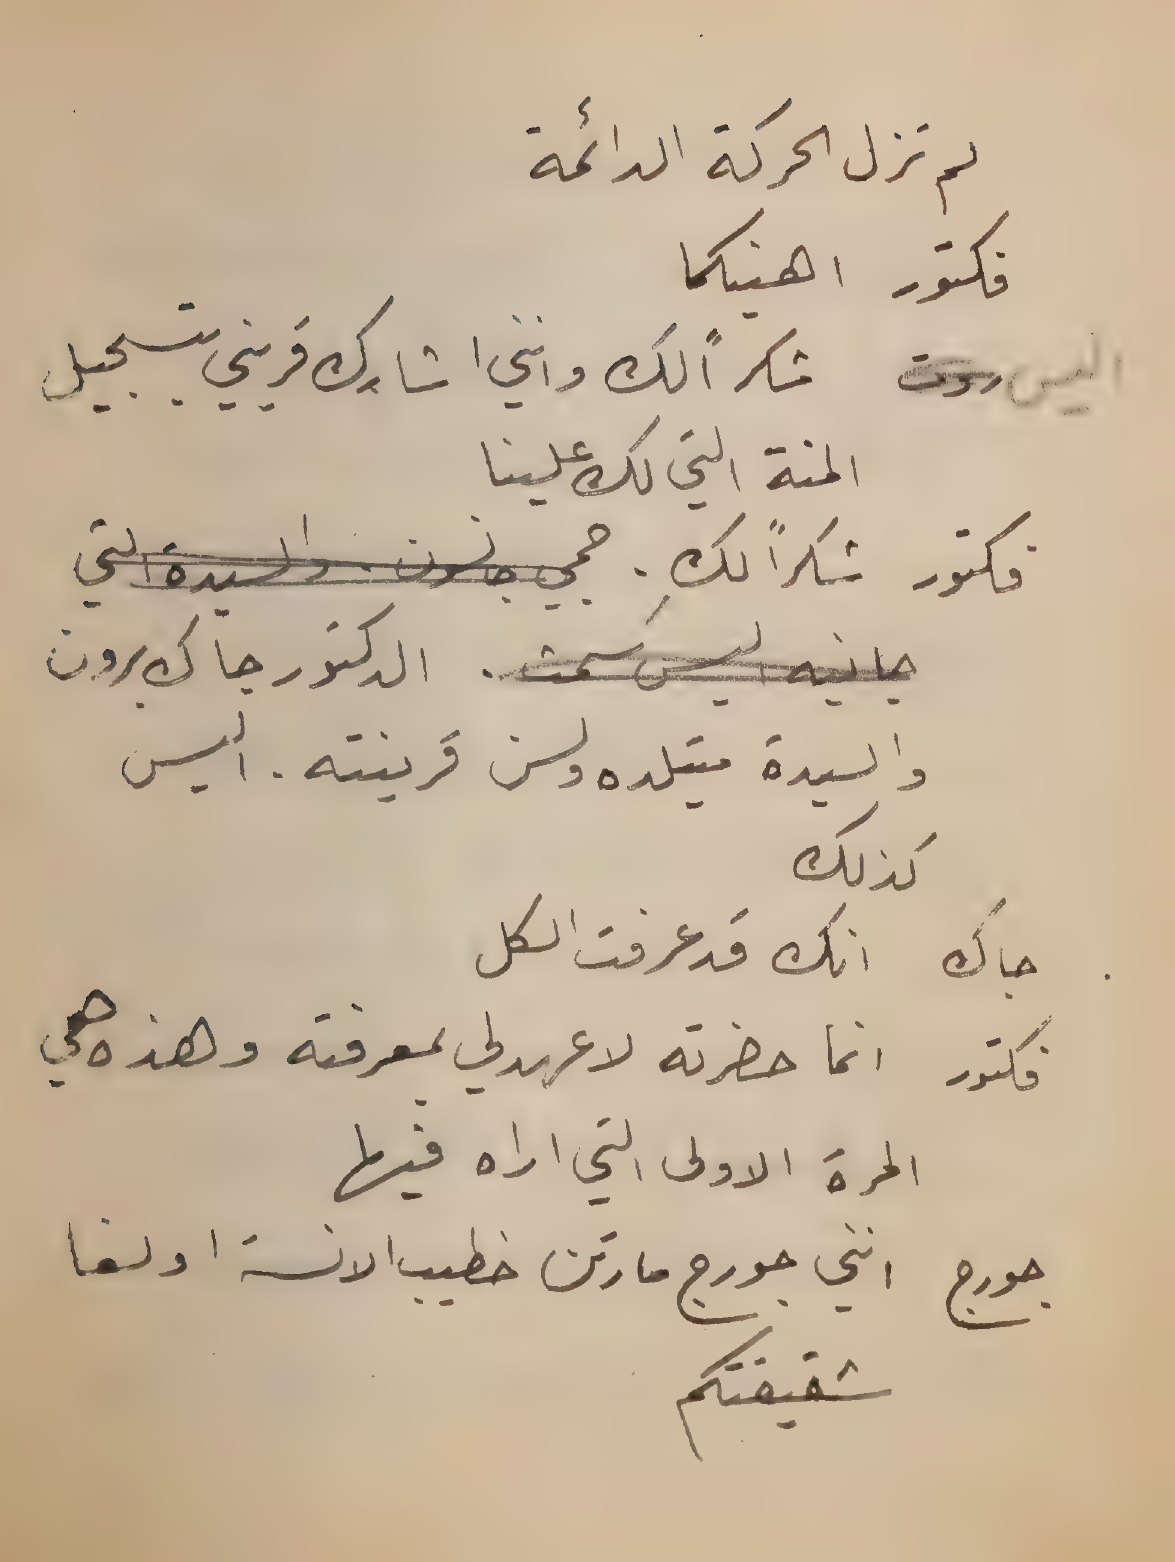 لم تزل الحركة الدائمة
فكتور اهنيكما
اليس شكراً لك وانني اشارك قريني بتسجيل
المنة التي لك علينا
فكتور شكراً لك. جمي جانسون. والسيدة التي
جانبه اليس سمث. الدكتور جاك برون
والسيدة متيلده ولسن قرينته. اليس
كذلك
جاك انك قد عرفت الكل
فكتور انما حضرته لا عهد لي بمعرفته وهذه هي
المرة الاولى التي اراه فيها
جورج انني جورج مارتن خطيب الانسة اولغا
شقيقتكم